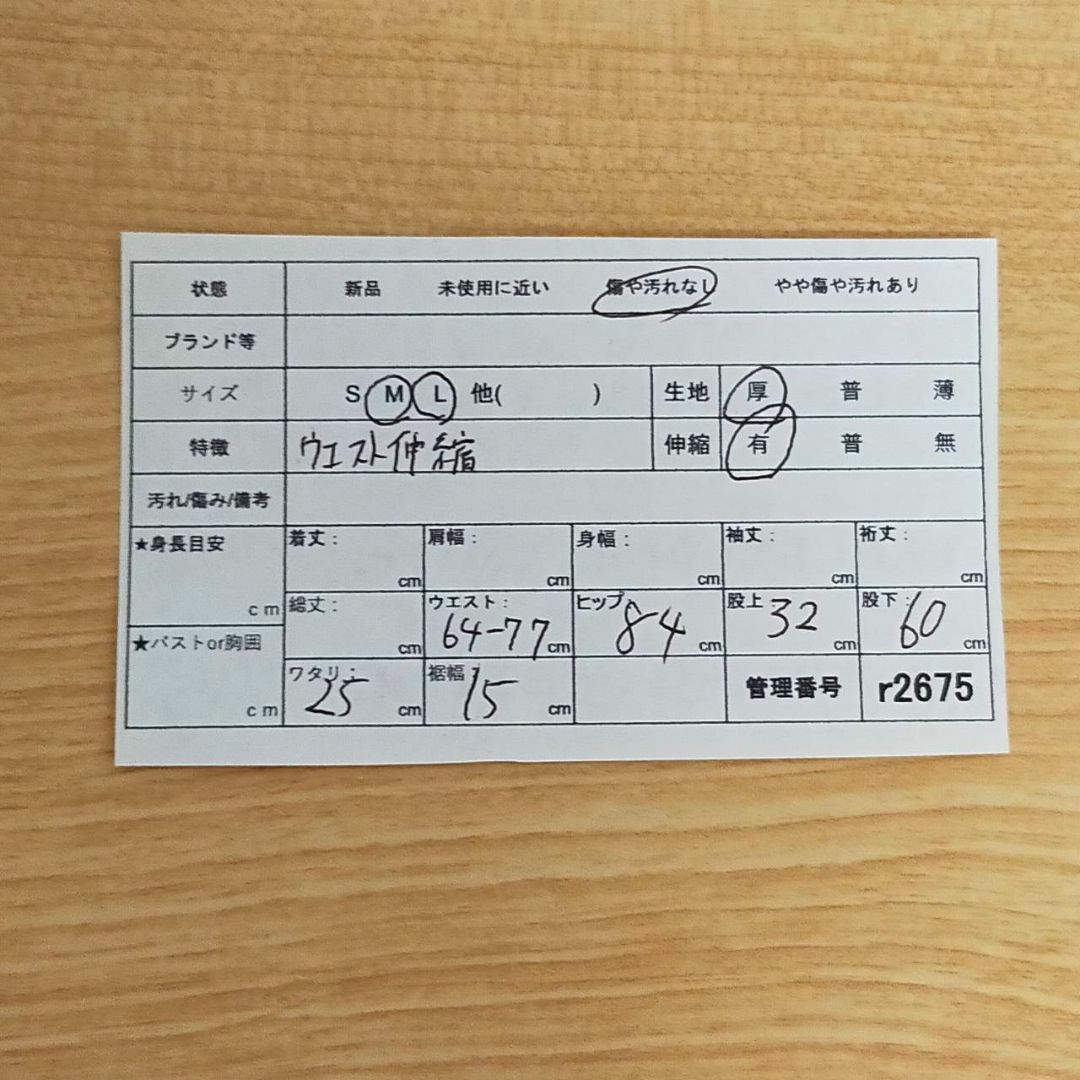 状態 新品 未使用に近い 傷や汚れなし やや傷や汚れあり
ブランド等
サイズ S M L 他( ) 生地 厚 普 薄
特徴 ウエスト伸縮 伸縮 有 普 無
汚れ/傷み/備考
★身長目安 cm
着丈: cm 肩幅: cm 身幅: cm 袖丈: cm 裄丈: cm
総丈: cm ウエスト: 64-77 cm ヒップ: 84 cm 股上 32 cm 股下: 60 cm
★バストor胸囲 cm
ワタリ: 25 cm 裾幅 15 cm 管理番号 r2675